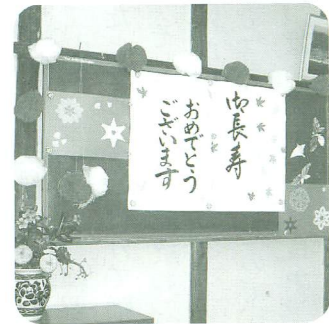 御長寿
おめでとう
ございます